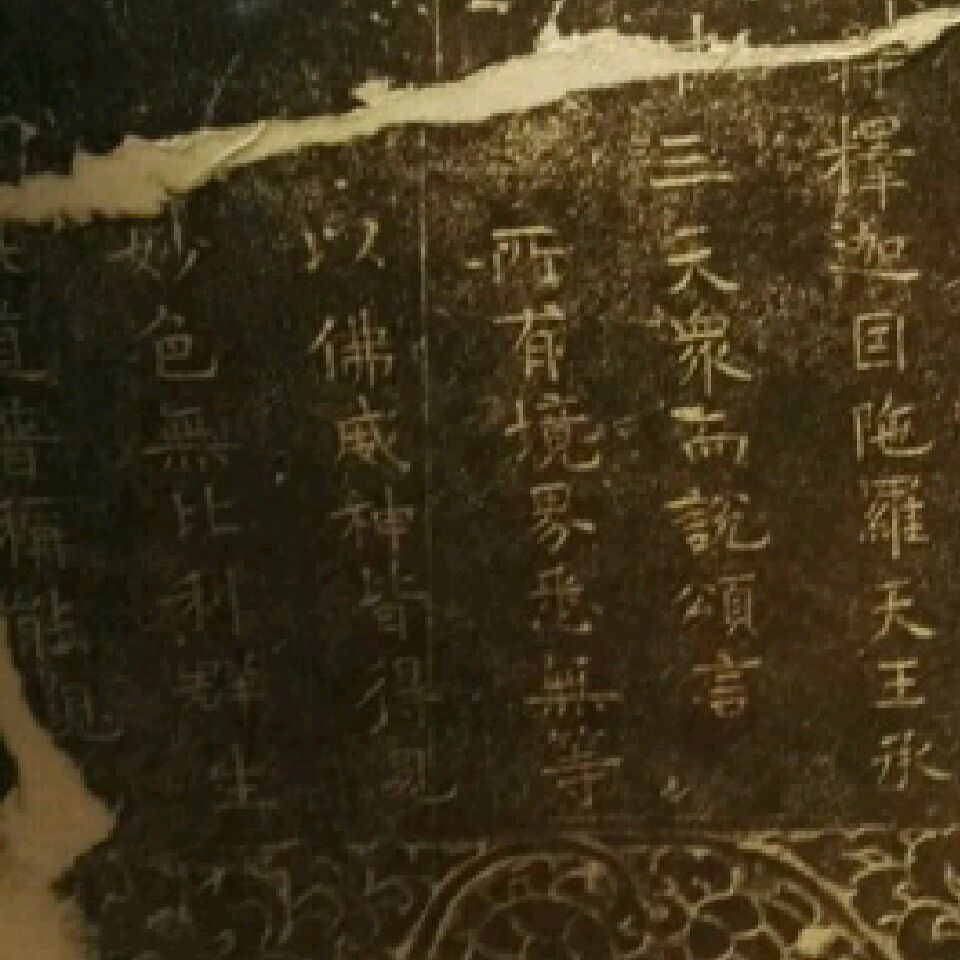 釋迦因陁羅天王承
三天衆而說頌言
所有境界悉無等
以佛威神皆得見
妙色無比利群生
道普稱能見